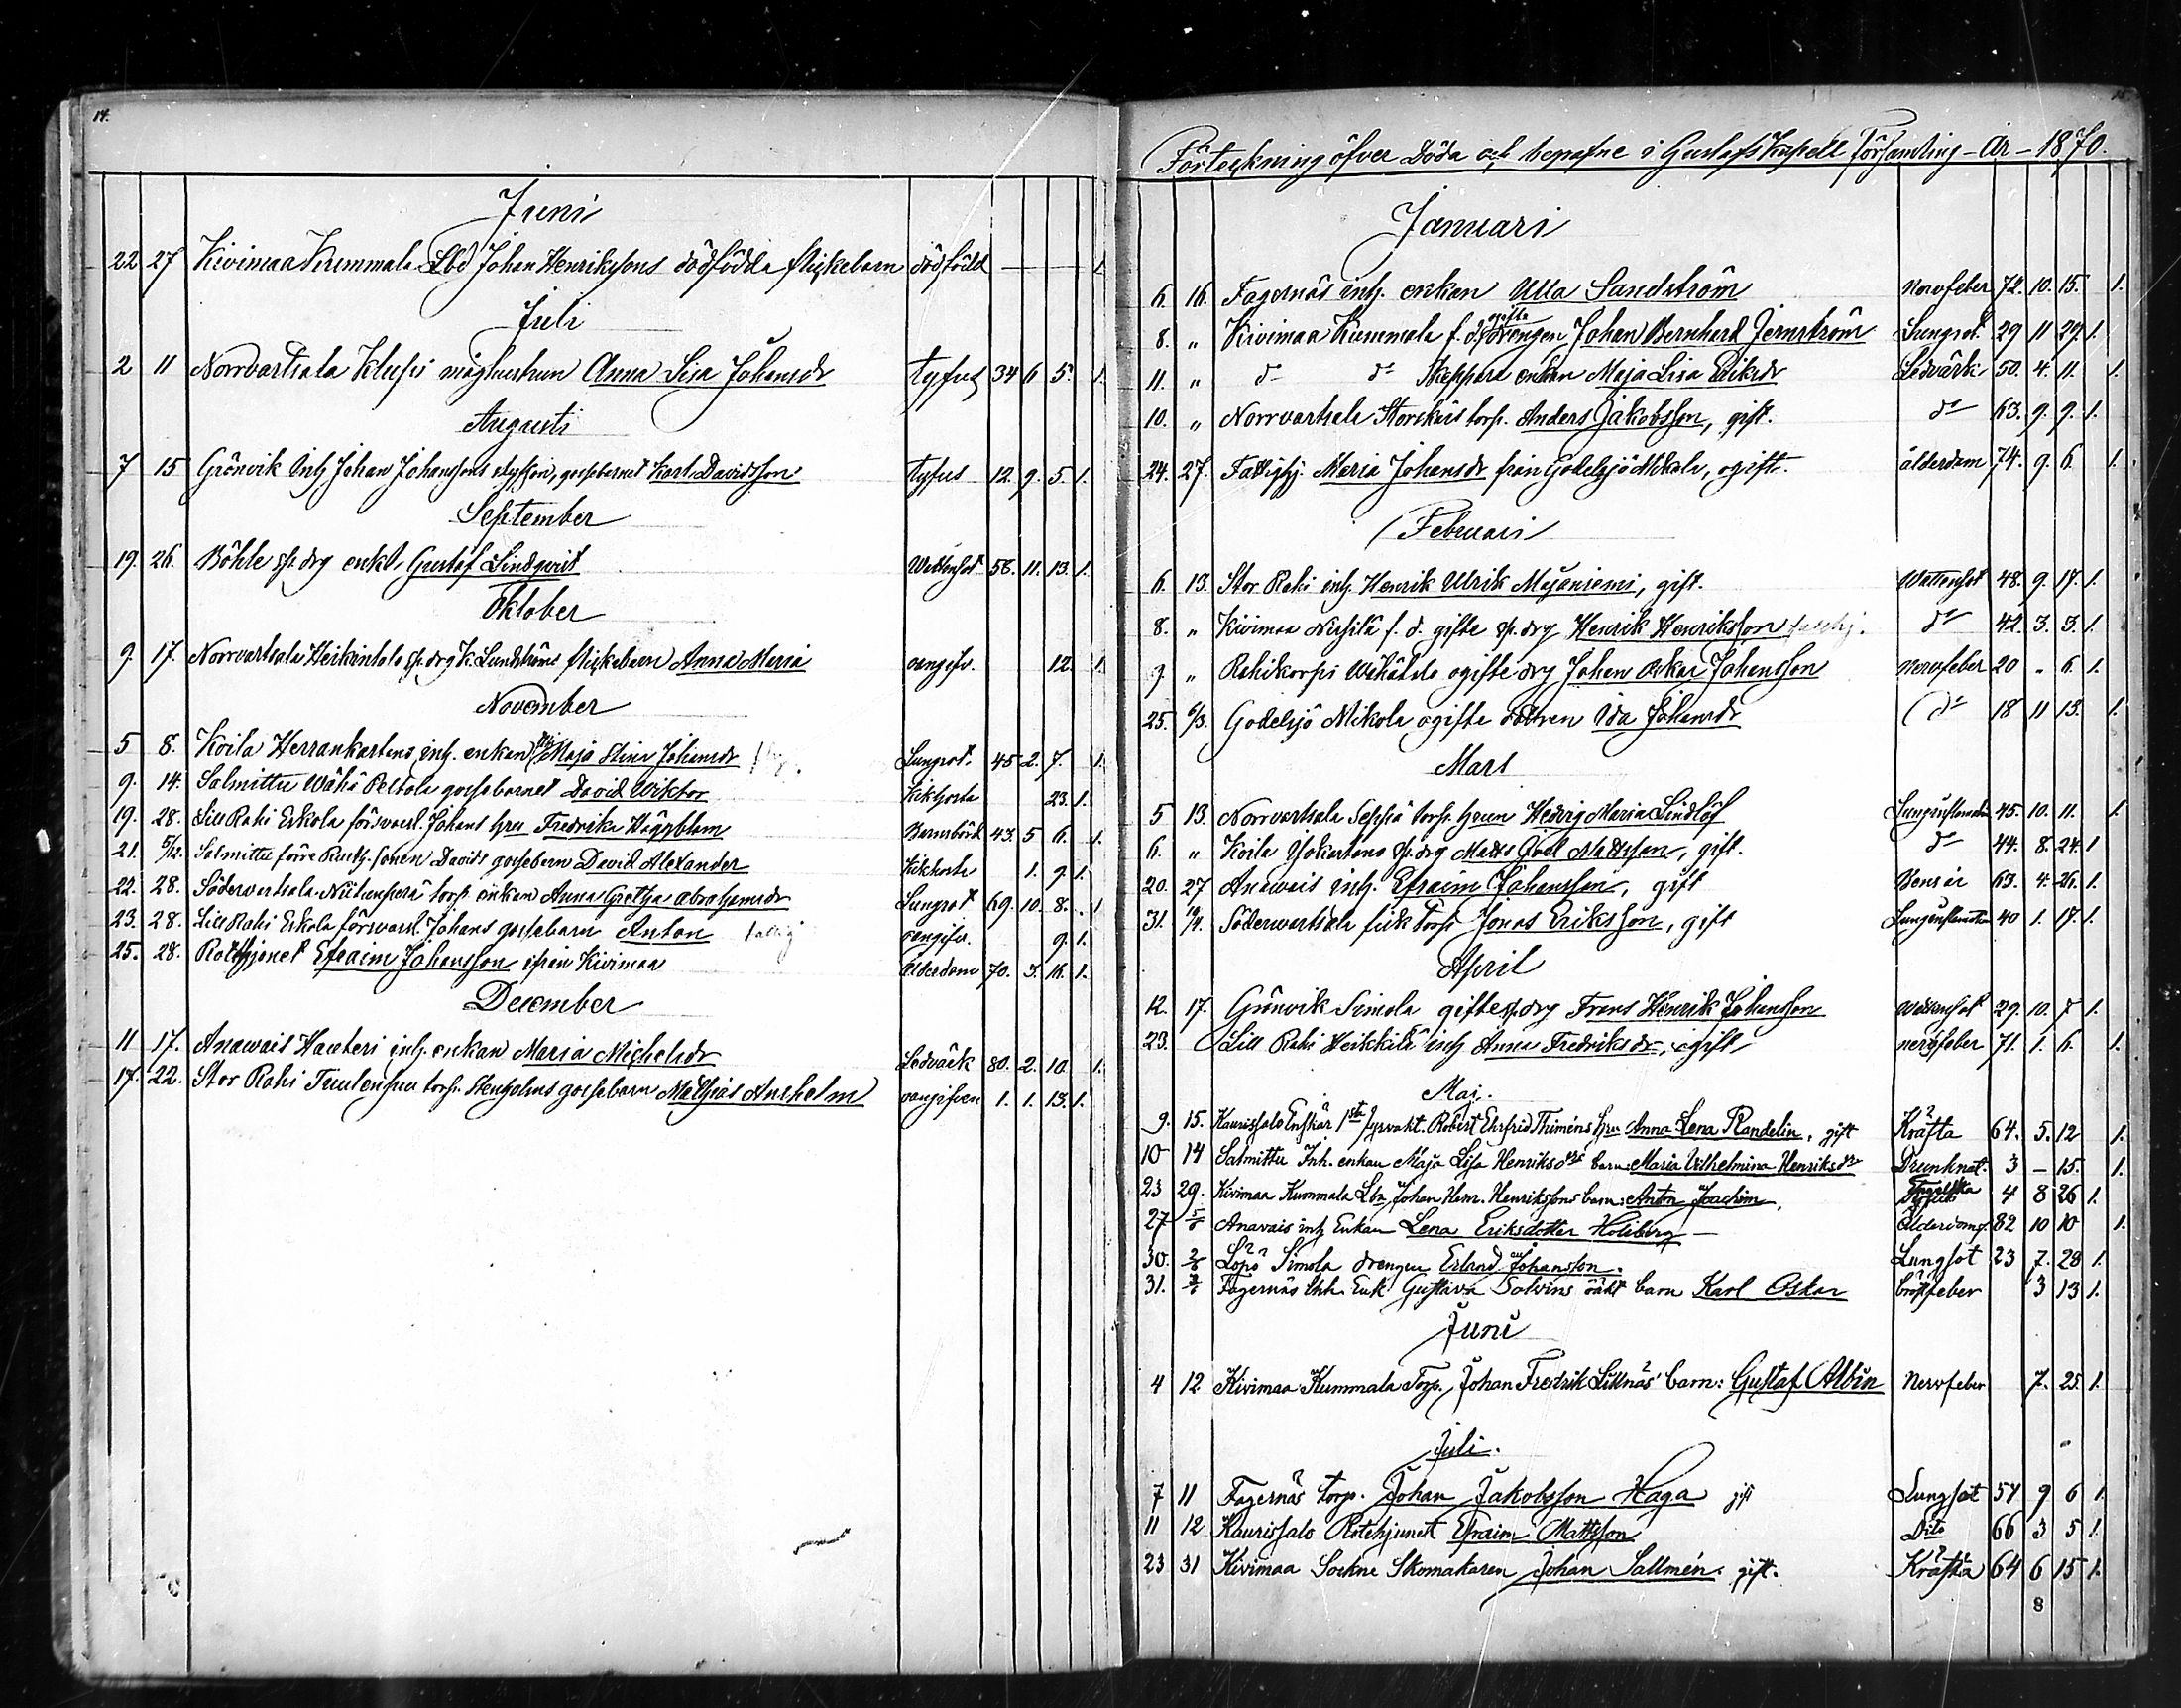 14.
Juni
22 27 Kivimaa Kummala Lbd Johan Henrikssons dödfödda flickebarn dödfödd 1.
Juli
2 11 Norrvartsala Klupi måghustrun Anna Lisa Johansdr tyfus 34 6 5. 1.
Augusti
7 15 Grönvik Inh Johan Johanssons styfson, gossebarnet Karl Davidsson tyfus 12. 9. 5. 1.
September
19. 26. Böhle sp. drg enkl. Gustaf Lindqvist Wattusot 56. 11. 13. 1.
Oktober
9. 17. Norrvartsala Heikintalo sp. drg K. Lundströms flickebarn Anna Maria oangifv. 12. 1.
November
5 8. Koila Herrankartano inh. enkan Maja Stina Johansdr Lungsot. 45 2. 7. 1.
9. 14. Salmittu Wähä Peltola gossebarnet David Wiktor Kikhosta 23. 1.
19. 28. Lill Rahi Eskola försvarsl. Johans hru Fredrika Häggblom Barnsbörd 43. 5 6. 1.
21. 5/12. Salmittu förre Rusth. sonen Davids gossebarn David Alexander Kikhosta 1. 9. 1.
22. 28. Södervartsala torp. enkan Anna Gretha Abrahamsdr Lungsot 69. 10. 8. 1
23. 28. Lill Rahi Eskola försvarsl. Johans gossebarn Anton fattig oangifv. 9. 1.
25. 28. Rotehjonet Efraim Johansson ifrån Kivimaa Ålderdom 70. 3. 16. 1.
December
11 17. Anawais Haveteri inh. enkan Maria Michelsdr Ledvärk 80. 2. 10. 1.
17. 22. Stor Rahi Tuulenpuu torp. Stenholms gossebarn Mathias Anshelm oangifven 1. 1. 13. 1.
15.
Förteckning öfver Döda och begrafne i Gustafs Kapell Församling - År - 1870.
Januari
6. 16. Fagernäs inh. enkan Ulla Sandström Nervfeber 72. 10. 15. 1.
8. „ Kivimaa Kummala f. d. gifte drengen Johan Bernhard Jernström Lungsot. 29 11 29. 1.
11. „ do do Skeppara enkan Maja Lisa Eriksdr Ledvärk 50. 4. 11. 1.
10. „ Norrvartsala Storskärs torp. Anders Jakobsson, gift. do 63. 9. 9. 1.
24. 27. Fattighj. Maria Johansdr från Godelsjö Mikola, ogift. ålderdom 74. 9. 6. 1.
Februari
6. 13. Stor Rahi inh. Henrik Ulrik Majaniemi, gift. Wattusot 48. 9. 17. 1.
8. „ Kivimaa Nissilä f. d. gifte sp. drg Henrik Henriksson do 42. 3. 3. 1.
9. „ Rahikorpi Wähätalo ogifte drg Johan Oskar Johansson Nervfeber 20 „ 6. 1.
25. 6/3. Godelsjö Mikola ogifta dottren Ida Johansdr do 18 11 13. 1.
Mars
5 13. Norrvartsala Seppä torp. hrun Hedvig Maria Lindlöf Lunginflamation 45. 10. 11. 1.
6. „ Koila sp. drg Matts Joel Mattsson, gift. do 44. 8. 24. 1
20. 27 Anawais inh. Efraim Johansson, gift 63. 4. 26. 1.
31. Södervartsala torp. Jonas Eriksson, gift Lunginflamation 40 1. 17. 1.
April
12. 17. Grönvik Simola gifte sp. drg Frans Henrik Johansson Wattusot 29. 10. 7 1.
23. Lill Rahi Heikkilä inh Anna Fredriksdr, ogift nervfeber 71. 1. 6. 1.
Maj.
9. 15. Kaurissalo Enskär 1sta fyrvakt. Robert Ehrfrid Thiméns hru Anna Lena Randelin, gift Kräfta 64. 5. 12 1.
10 14 Salmittu Inh. enkan Maja Lisa Henriksdrs barn: Maria Vilhelmina Henriksdr Drunknat. 3 - 15. 1.
23 29. Kivimaa Kummala Lbn Johan Henr. Henrikssons barn: Anton Joachim. Engelska 4 8 26 1.
27 5/6 Anavais inh Enkan Lena Eriksdotter Holiberg Ålderdoms. 82 10 10 1.
30. 2/6 Löpö Simola drengen Erland Johansson. Lungsot 23 7. 28 1.
31. Fagernäs Inh. Enk. Gustava Salvins oäkt barn Karl Oskar bröstfeber 3 13 1.
Juni
4 12 Kivimaa Kummala Torp. Johan Fredrik Lillnäs' barn: Gustaf Albin Nervfeber 7. 25. 1.
Juli.
7 11 Fagernäs torp. Johan Jakobsson Haga gift Lungsot 57 9 6 1.
11 12 Kaurissalo Rotehjonet Efraim Mattsson Dito 66 3 5 1.
23 31 Kivimaa Sockne Skomakaren Johan Sallmén. gift. Kräfta 64 6 15 1.
8